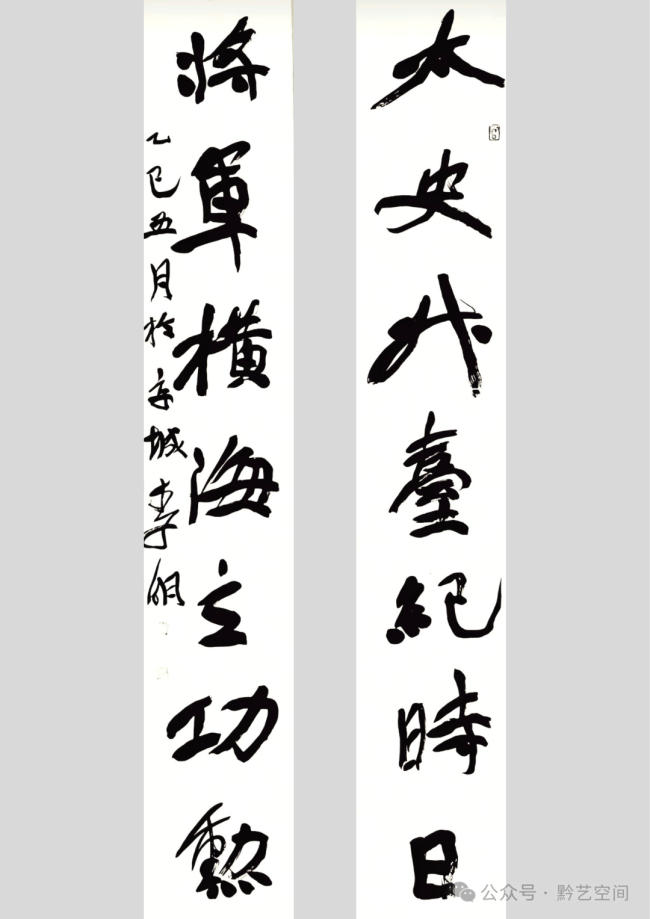 太史升臺紀時日
將軍橫海立功勳
乙巳五月於城李
公众号·黔艺空间